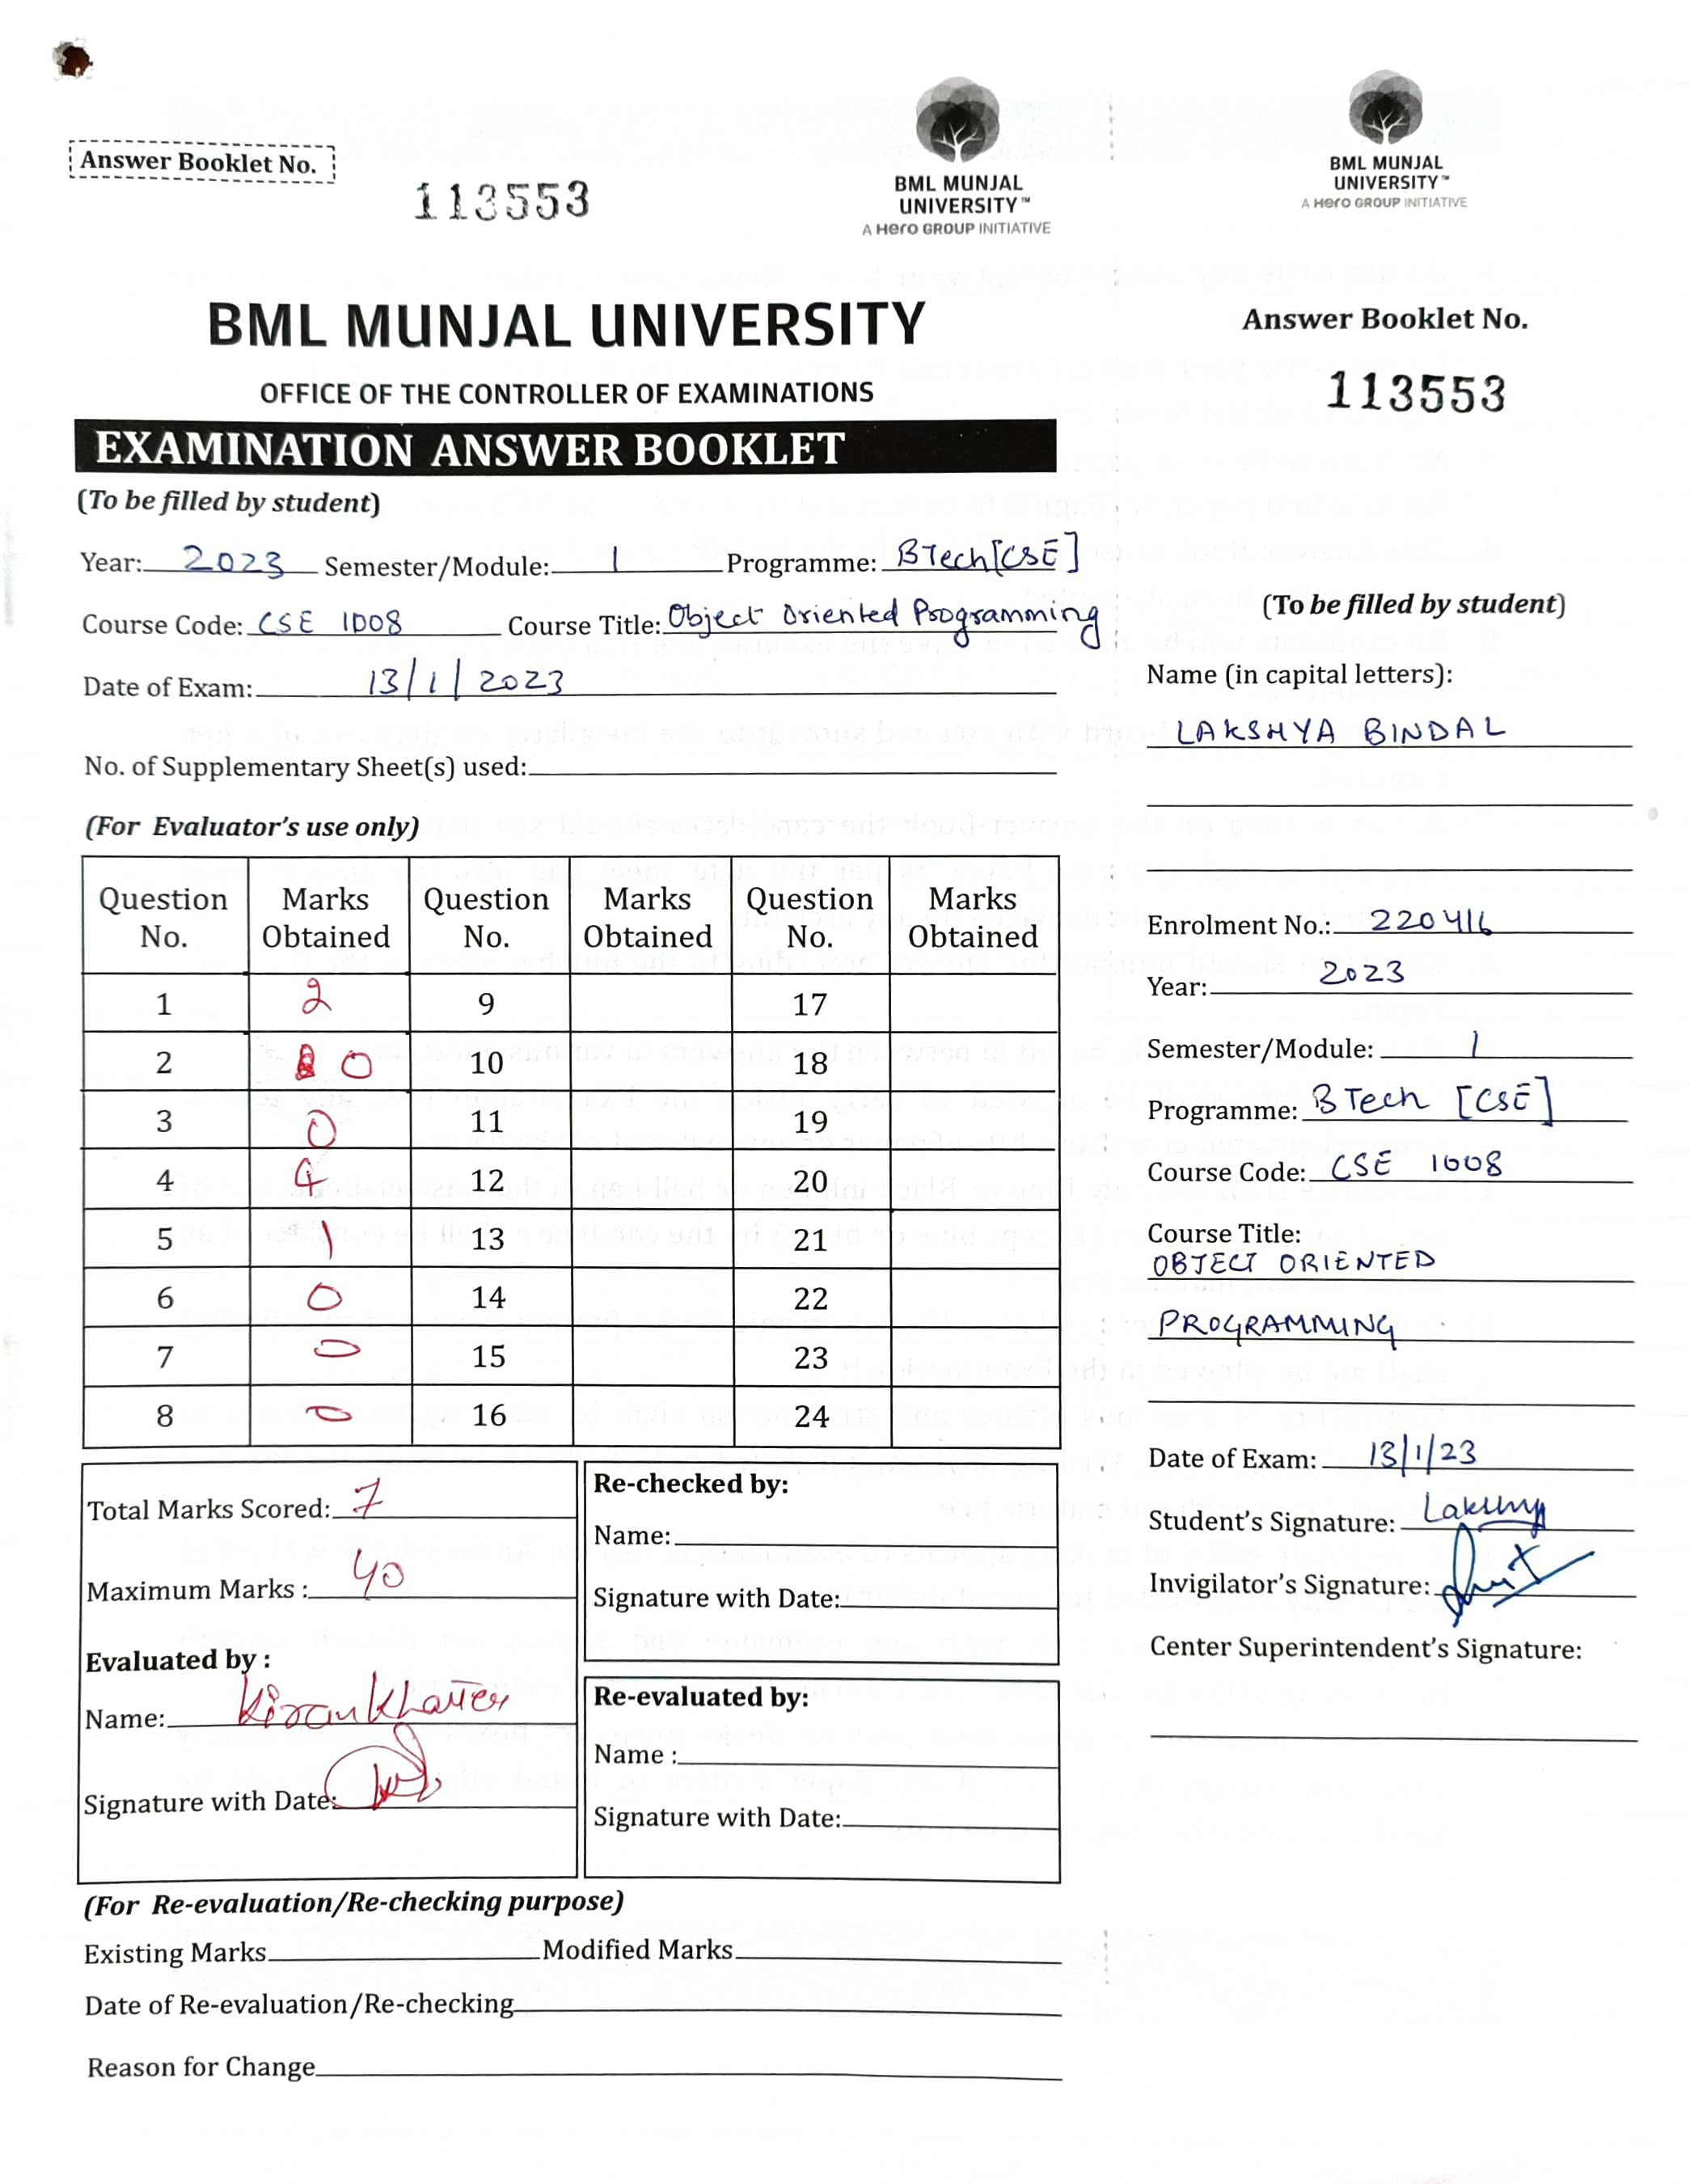 Answer Booklet No.
113553
BML MUNJAL
UNIVERSITY™
A Hero GROUP INITIATIVE
BML MUNJAL UNIVERSITY
OFFICE OF THE CONTROLLER OF EXAMINATIONS
EXAMINATION ANSWER BOOKLET
(To be filled by student)
Year: 2023 Semester/Module: 1 Programme: BTech[CSE]
Course Code: CSE 1008 Course Title: Object Oriented Programming
Date of Exam: 13/1/2023
No. of Supplementary Sheet(s) used:
(For Evaluator's use only)
Question No. Marks Obtained Question No. Marks Obtained Question No. Marks Obtained
1 2 9 17
2 0 10 18
3 0 11 19
4 4 12 20
5 1 13 21
6 0 14 22
7 0 15 23
8 0 16 24
Total Marks Scored: 7
Maximum Marks : 40
Evaluated by :
Name: Kiran Khatter
Signature with Date:
Re-checked by:
Name:
Signature with Date:
Re-evaluated by:
Name :
Signature with Date:
(For Re-evaluation/Re-checking purpose)
Existing Marks Modified Marks
Date of Re-evaluation/Re-checking
Reason for Change
BML MUNJAL
UNIVERSITY™
A Hero GROUP INITIATIVE
Answer Booklet No.
113553
(To be filled by student)
Name (in capital letters):
LAKSHYA BINDAL
Enrolment No.: 220416
Year: 2023
Semester/Module: 1
Programme: BTech [CSE]
Course Code: CSE 1008
Course Title:
OBJECT ORIENTED
PROGRAMMING
Date of Exam: 13/1/23
Student's Signature: Lakshya
Invigilator's Signature:
Center Superintendent's Signature: